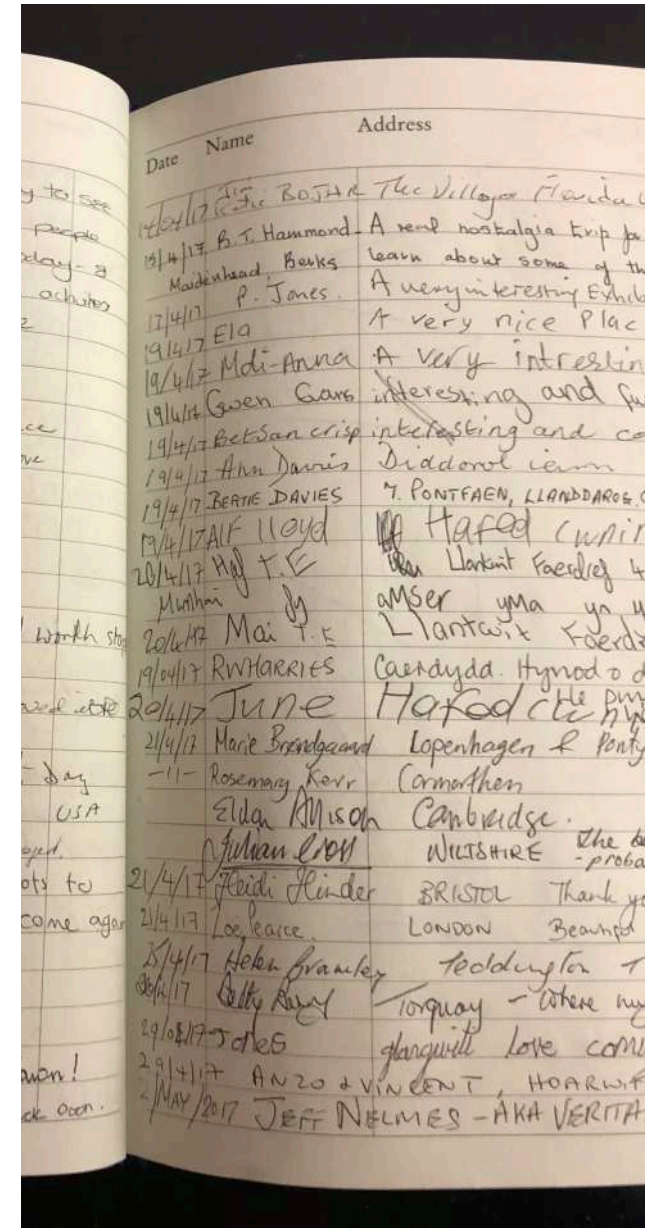 y to see
people
day - a
ove
worth stop
Day
USA
ots to
come again
Date Name Address
14/04/17 BOJHR The Villages Florida U
15/4/17 B.T. Hammond - A real nostalgia trip for
Maidenhead, Berks learn about some of th
17/4/17 P. Jones. A very interesting Exhib
19/4/17 Ela A very nice Plac
19/4/17 Mdi-Anna A very intrestin
19/4/17 Gwen Gars interesting and fu
19/4/17 Betsan crisp interesting and co
19/4/17 Ann Davies Diddorol iawn
19/4/17 BERTIE DAVIES 7. PONTFAEN, LLANDDAROG. C
19/4/17 Alf lloyd Hafed
20/4/17 T.E Llantwit Faerdref 4
aMser yma yn
20/4/17 Mai T.E Llantwit Faerdr
19/04/17 RWHARRIES Caerdydd. Hynod o d
20/4/17 June Hafod
21/4/17 Marie Brendgaard Copenhagen & Ponty
-11- Rosemary Kerr Carmarthen
Eldon Allison Cambridge.
Julian WILTSHIRE The be
- proba
21/4/17 Heidi Hinder BRISTOL Thank yo
21/4/17 Zoe Pearce. LONDON Beautiful
25/4/17 Helen Bramley Teddington T
Torquay - Where my
Jones glangwili Love comi
29/4/17 ANZO & VINCENT, HOARWIT
2/MAY/2017 JEFF NELMES - AKA VERITA